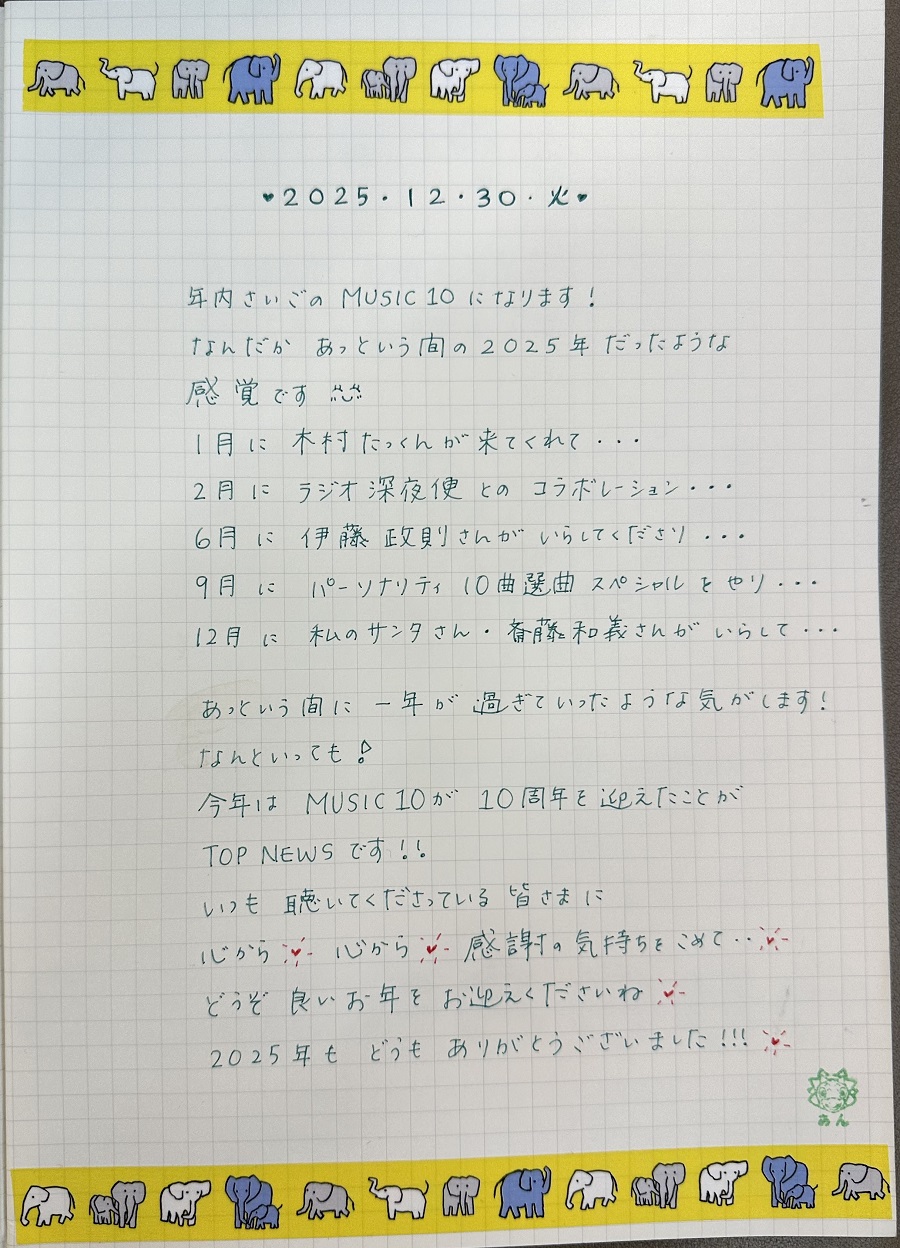 ♥2025・12・30・火♥
年内さいごの MUSIC 10 になります!
なんだか あっという間の 2025年 だったような
感覚です
1月に 木村たっくんが来てくれて・・・
2月に ラジオ深夜便との コラボレーション・・・
6月に 伊藤政則さんが いらしてくださり ・・・
9月に パーソナリティ 10曲選曲 スペシャルをやり・・・
12月に 私のサンタさん・斉藤和義さんが いらして・・・
あっという間に 一年が 過ぎていったような気がします!
なんといっても!
今年は MUSIC 10が 10周年を迎えたことが
TOP NEWS です!!
いつも 聴いてくださっている 皆さまに
心から♥ 心から♥ 感謝の気持ちをこめて・・♥
どうぞ 良いお年を お迎えくださいね♥
2025年も どうも ありがとうございました!!!♥
あん